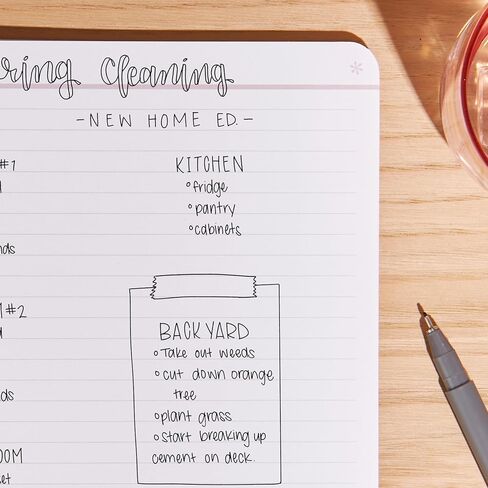 Cleaning
-NEW HOME ED.-
#1
KITCHEN
fridge
pantry
cabinets
#2
BACKYARD
Take out weeds
cut down orange
tree
plant grass
start breaking up
cement on deck.